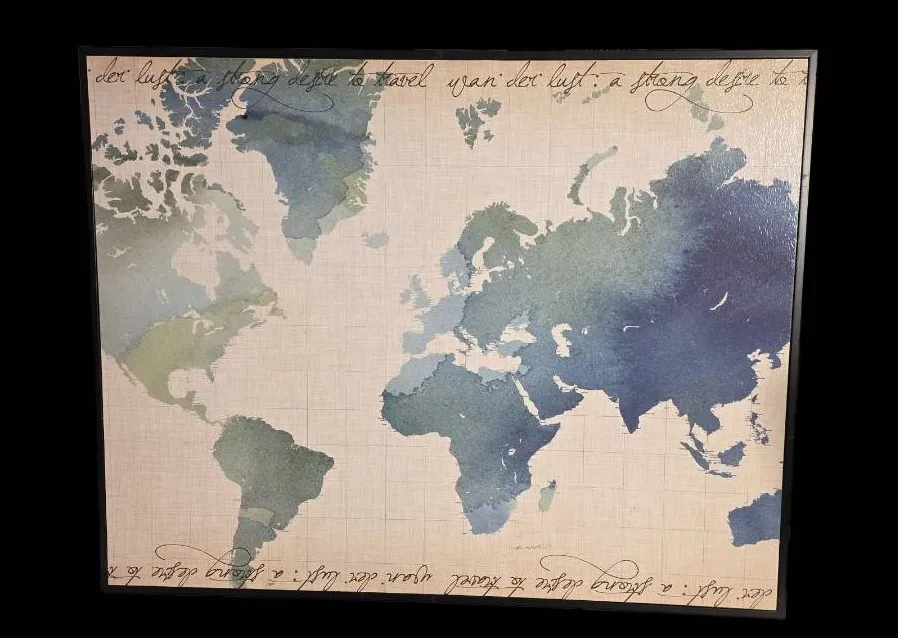 der lust: a strong desire to travel wan der lust: a strong desire to t
der lust: a strong desire to travel wan der lust: a strong desire to t